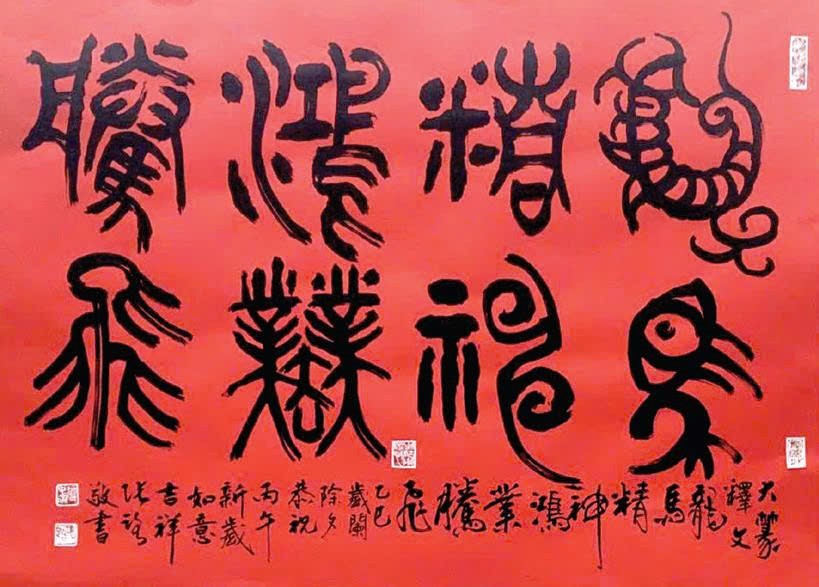 龍馬
精神
鴻業
騰飛
大篆
釋文
龍
馬
精
神
鴻
業
騰
飛
乙巳
歲闌
除夕
恭祝
丙午
新歲
如意
吉祥
敬書